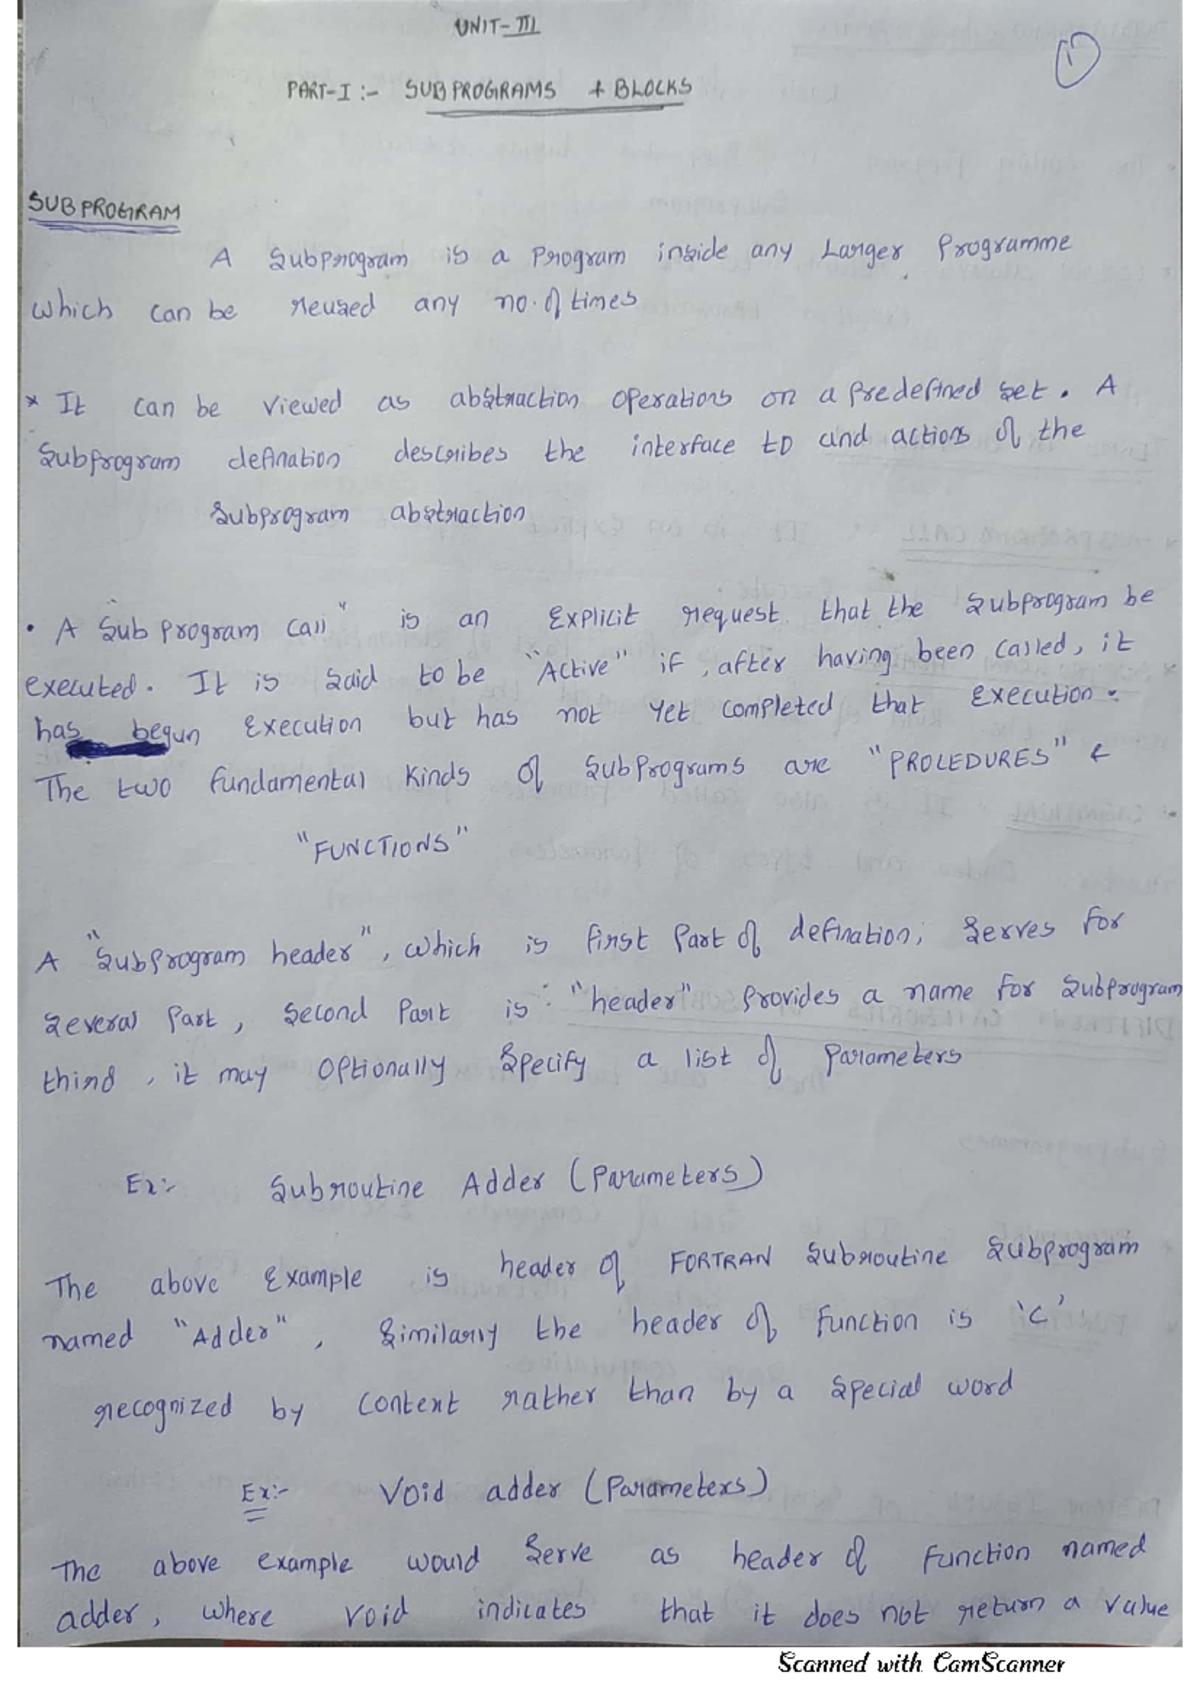 UNIT-III
1
PART-I :- SUBPROGRAMS & BLOCKS
SUBPROGRAM
A Subprogram is a Program inside any Larger Programme
which can be reused any no. of times
* It can be viewed as abstraction operations on a Predefined set. A
Subprogram defination describes the interface to and actions of the
Subprogram abstraction
• A "Sub Program Call" is an Explicit request that the Subprogram be
executed. It is Said to be "Active" if, after having been called, it
has begun Execution but has not yet completed that Execution.
The two fundamental Kinds of SubPrograms are "PROCEDURES" &
"FUNCTIONS"
A "SubProgram header", which is first Part of defination; Serves for
Several Part, Second Part is "header" Provides a name for Subprogram
third, it may Optionally Specify a list of Parameters
Ex:- Subroutine Adder (Parameters)
The above Example is header of FORTRAN Subroutine Subprogram
named "Adder", Similarly the header of Function is 'C'
recognized by Content rather than by a Special word
Ex:- Void adder (Parameters)
The above example would Serve as header of Function named
adder, where void indicates that it does not return a value
Scanned with CamScanner